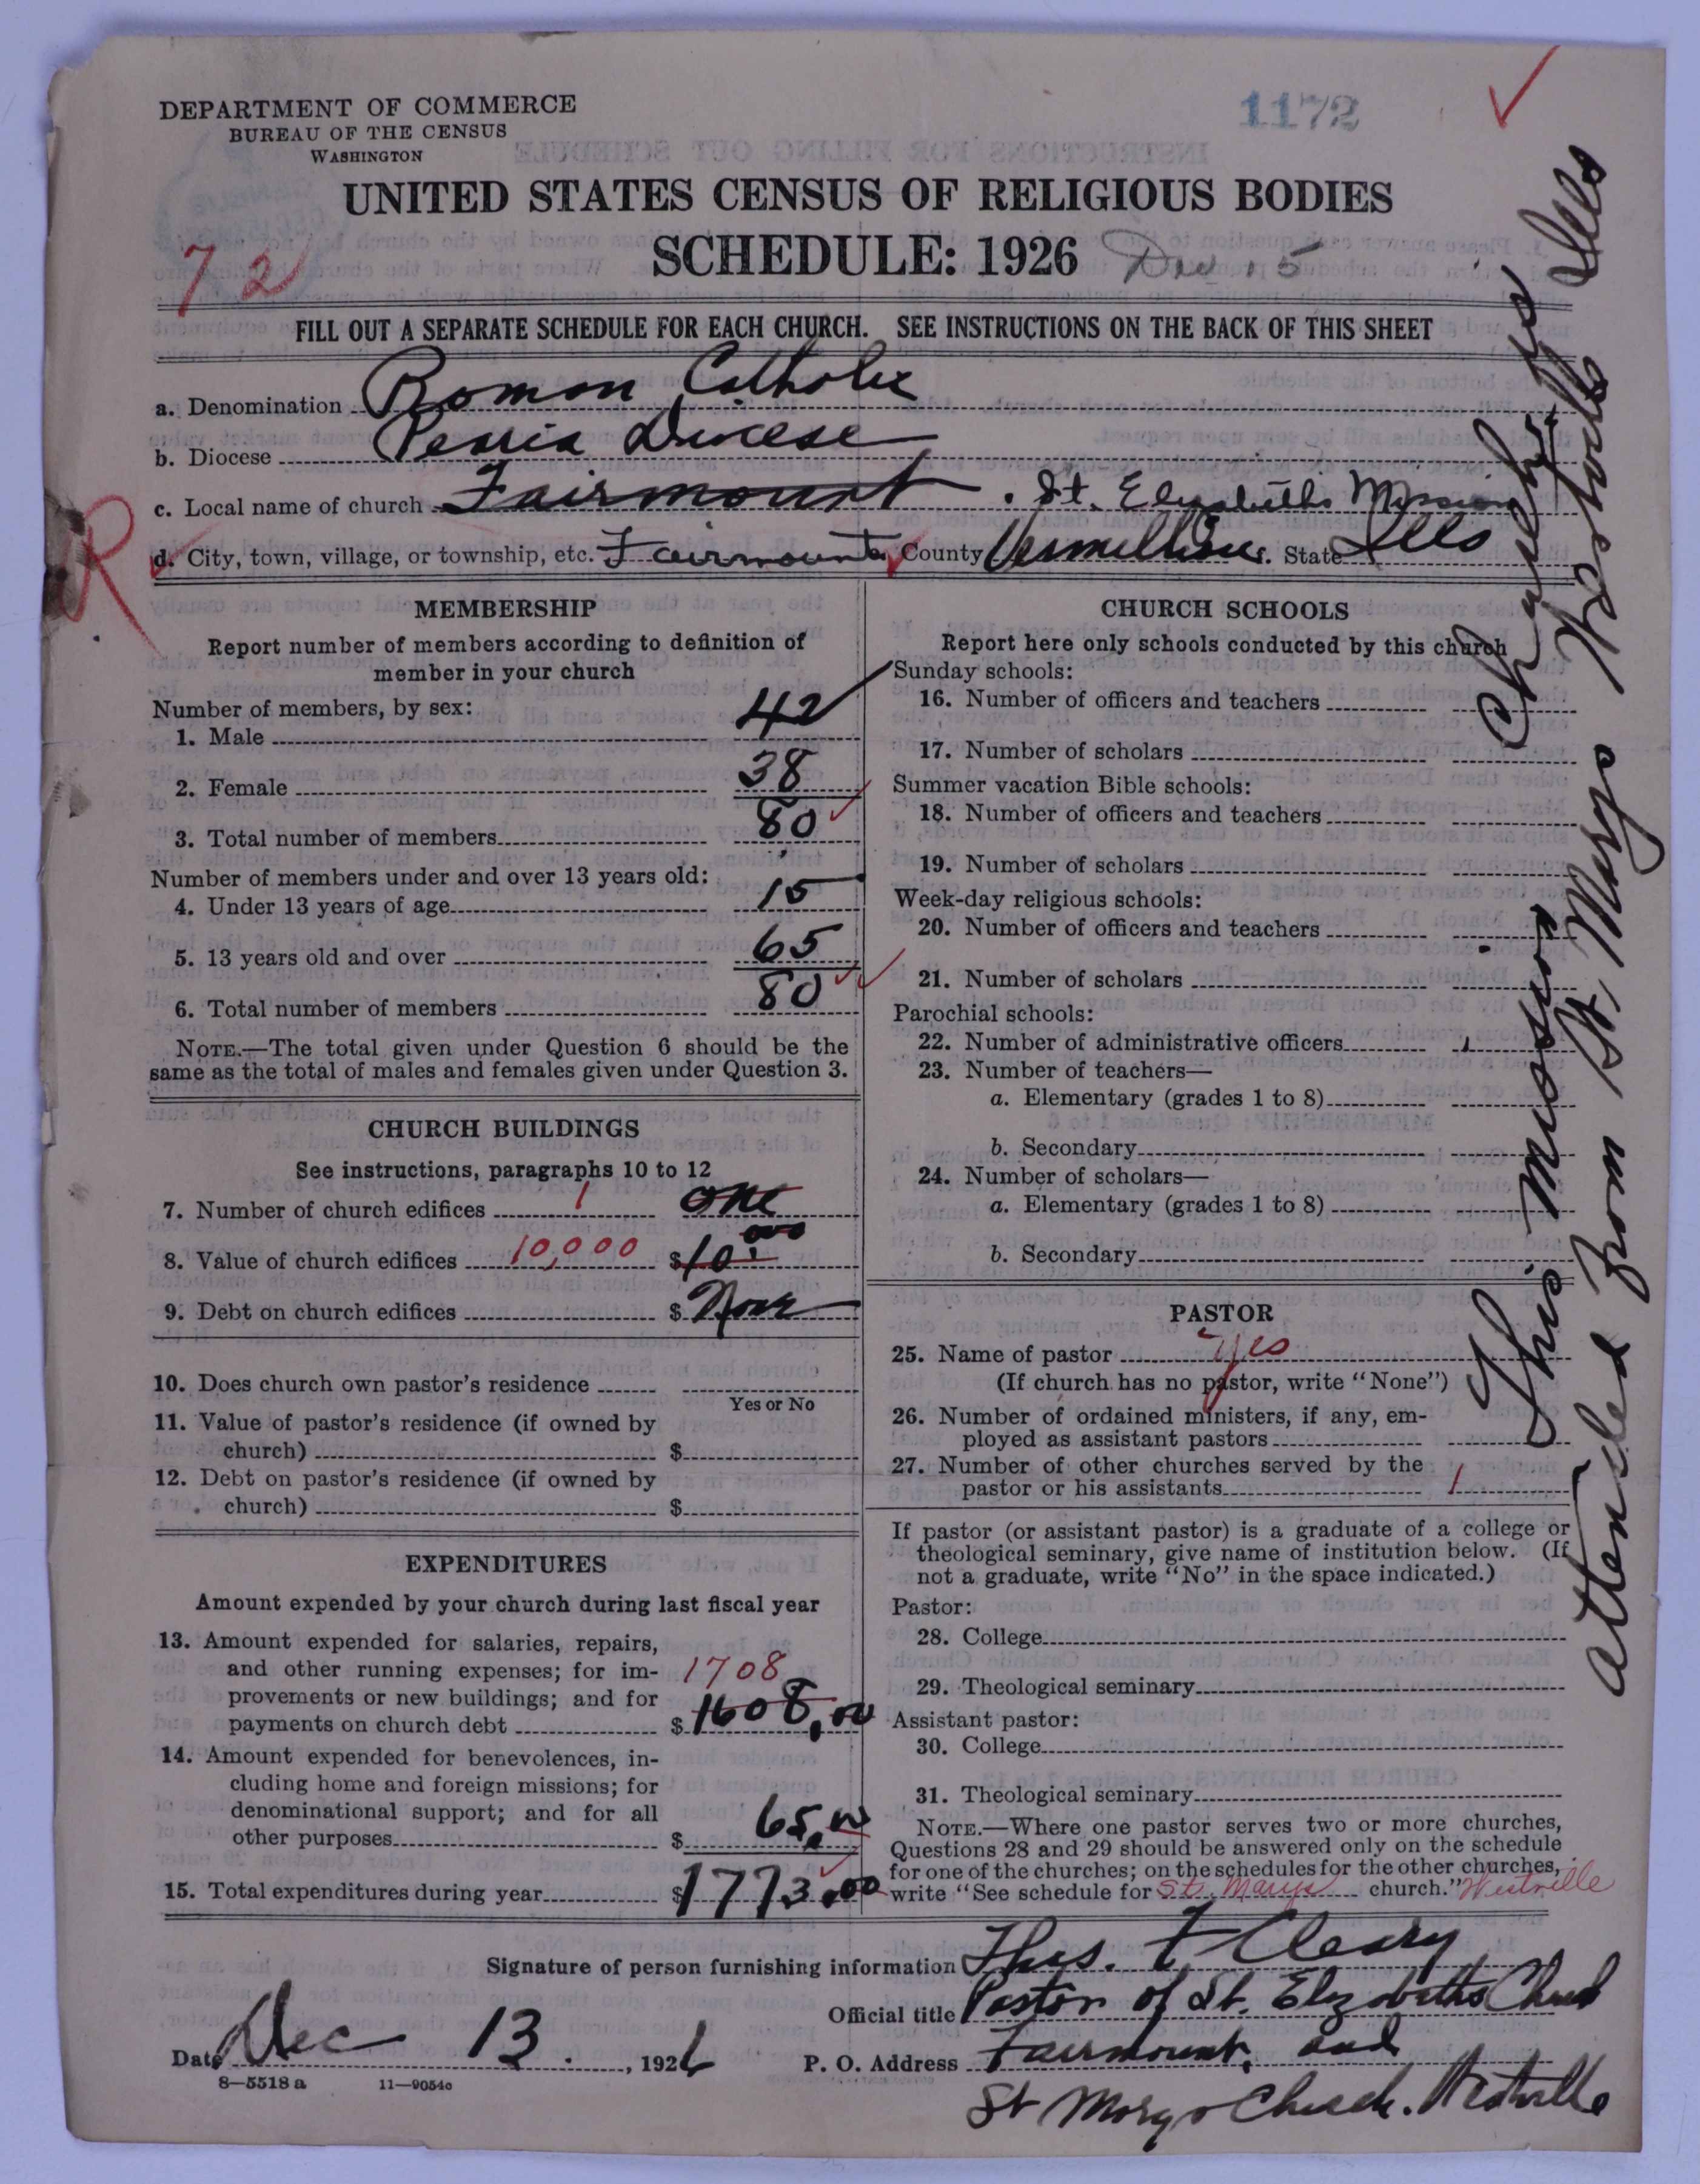 DEPARTMENT OF COMMERCE
BUREAU OF THE CENSUS
WASHINGTON
1172
UNITED STATES CENSUS OF RELIGIOUS BODIES
SCHEDULE: 1926
72
FILL OUT A SEPARATE SCHEDULE FOR EACH CHURCH. SEE INSTRUCTIONS ON THE BACK OF THIS SHEET
a. Denomination Roman Catholic
b. Diocese Peoria Diocese
c. Local name of church Fairmount . St. Elizabeths Mission
d. City, town, village, or township, etc. Fairmount County Vermillion State Ills
R
MEMBERSHIP
Report number of members according to definition of
member in your church
Number of members, by sex:
1. Male 42
2. Female 38
3. Total number of members 80
Number of members under and over 13 years old:
4. Under 13 years of age 15
5. 13 years old and over 65
6. Total number of members 80
NOTE.—The total given under Question 6 should be the
same as the total of males and females given under Question 3.
CHURCH BUILDINGS
See instructions, paragraphs 10 to 12
7. Number of church edifices 1 one
8. Value of church edifices 10,000 $10.000
9. Debt on church edifices $ None
10. Does church own pastor's residence
Yes or No
11. Value of pastor's residence (if owned by
church) $
12. Debt on pastor's residence (if owned by
church) $
EXPENDITURES
Amount expended by your church during last fiscal year
13. Amount expended for salaries, repairs,
and other running expenses; for im-
provements or new buildings; and for 1708
payments on church debt $ 1608,00
14. Amount expended for benevolences, in-
cluding home and foreign missions; for
denominational support; and for all
other purposes $ 65.00
15. Total expenditures during year $1773.00
CHURCH SCHOOLS
Report here only schools conducted by this church
Sunday schools:
16. Number of officers and teachers
17. Number of scholars
Summer vacation Bible schools:
18. Number of officers and teachers
19. Number of scholars
Week-day religious schools:
20. Number of officers and teachers
21. Number of scholars
Parochial schools:
22. Number of administrative officers
23. Number of teachers—
a. Elementary (grades 1 to 8)
b. Secondary
24. Number of scholars—
a. Elementary (grades 1 to 8)
b. Secondary
PASTOR
25. Name of pastor Yes
(If church has no pastor, write "None")
26. Number of ordained ministers, if any, em-
ployed as assistant pastors
27. Number of other churches served by the
pastor or his assistants 1
If pastor (or assistant pastor) is a graduate of a college or
theological seminary, give name of institution below. (If
not a graduate, write "No" in the space indicated.)
Pastor:
28. College
29. Theological seminary
Assistant pastor:
30. College
31. Theological seminary
NOTE.—Where one pastor serves two or more churches,
Questions 28 and 29 should be answered only on the schedule
for one of the churches; on the schedules for the other churches,
write "See schedule for St. Marys church." Westville
This mission
attended from St. Marys Church Westville Ills
Signature of person furnishing information Thos. F Cleary
Official title Pastor of St. Elizabeths Church
Date Dec 13. , 1926
P. O. Address Fairmount, and
St Marys Church. Westville
8—5518 a 11—9054c